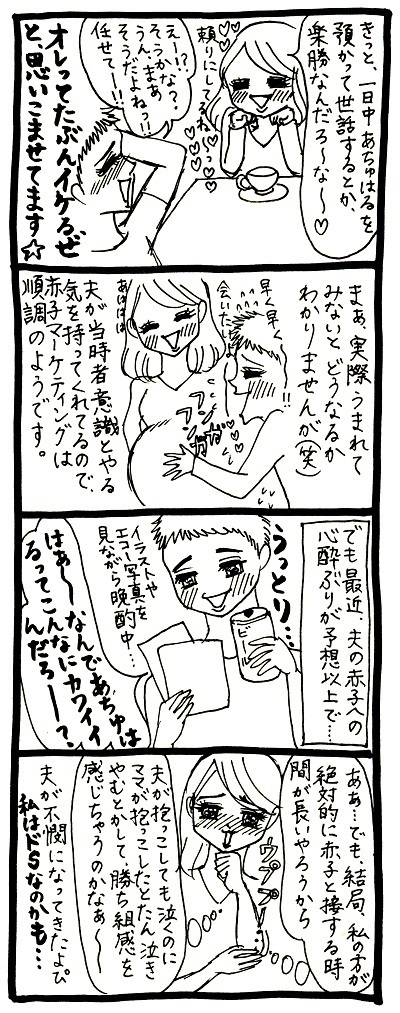 きっと、一日中あちゅはるを
預かって世話するとか、
楽勝なんだろ〜な〜♡
頼りにしてるね〜っっ
えー!?
そうかな?
うん、まあ
そうだよねっ!!
任せて〜!!
オレってたぶんイケるぜ
と、思いこませてます☆
まぁ、実際うまれて
みないと、どうなるか
わかりませんが(笑)
早く早く
会いた〜
あはははは
フンガフンガ
夫が当時者意識とやる
気を持ってくれてるので、
赤子マーケティングは
順調のようです。
でも最近、夫の赤子への
心酔ぶりが予想以上で…
うっとり…
ビール
イラストや
エコー写真を
見ながら晩酌中…
はぁ〜なんであちゅは
るってこんなにカワイイ
んだろ〜ー?
ああ…でも、結局、私の方が
絶対的に赤子と接する時
間が長いやろうから
ウププ
夫が抱っこしても泣くのに
ママが抱っこしたとたん泣き
やむとかして、勝ち組感を
感じちゃうのかなぁ〜
夫が不憫になってきたよぴ
私はドSなのかも…